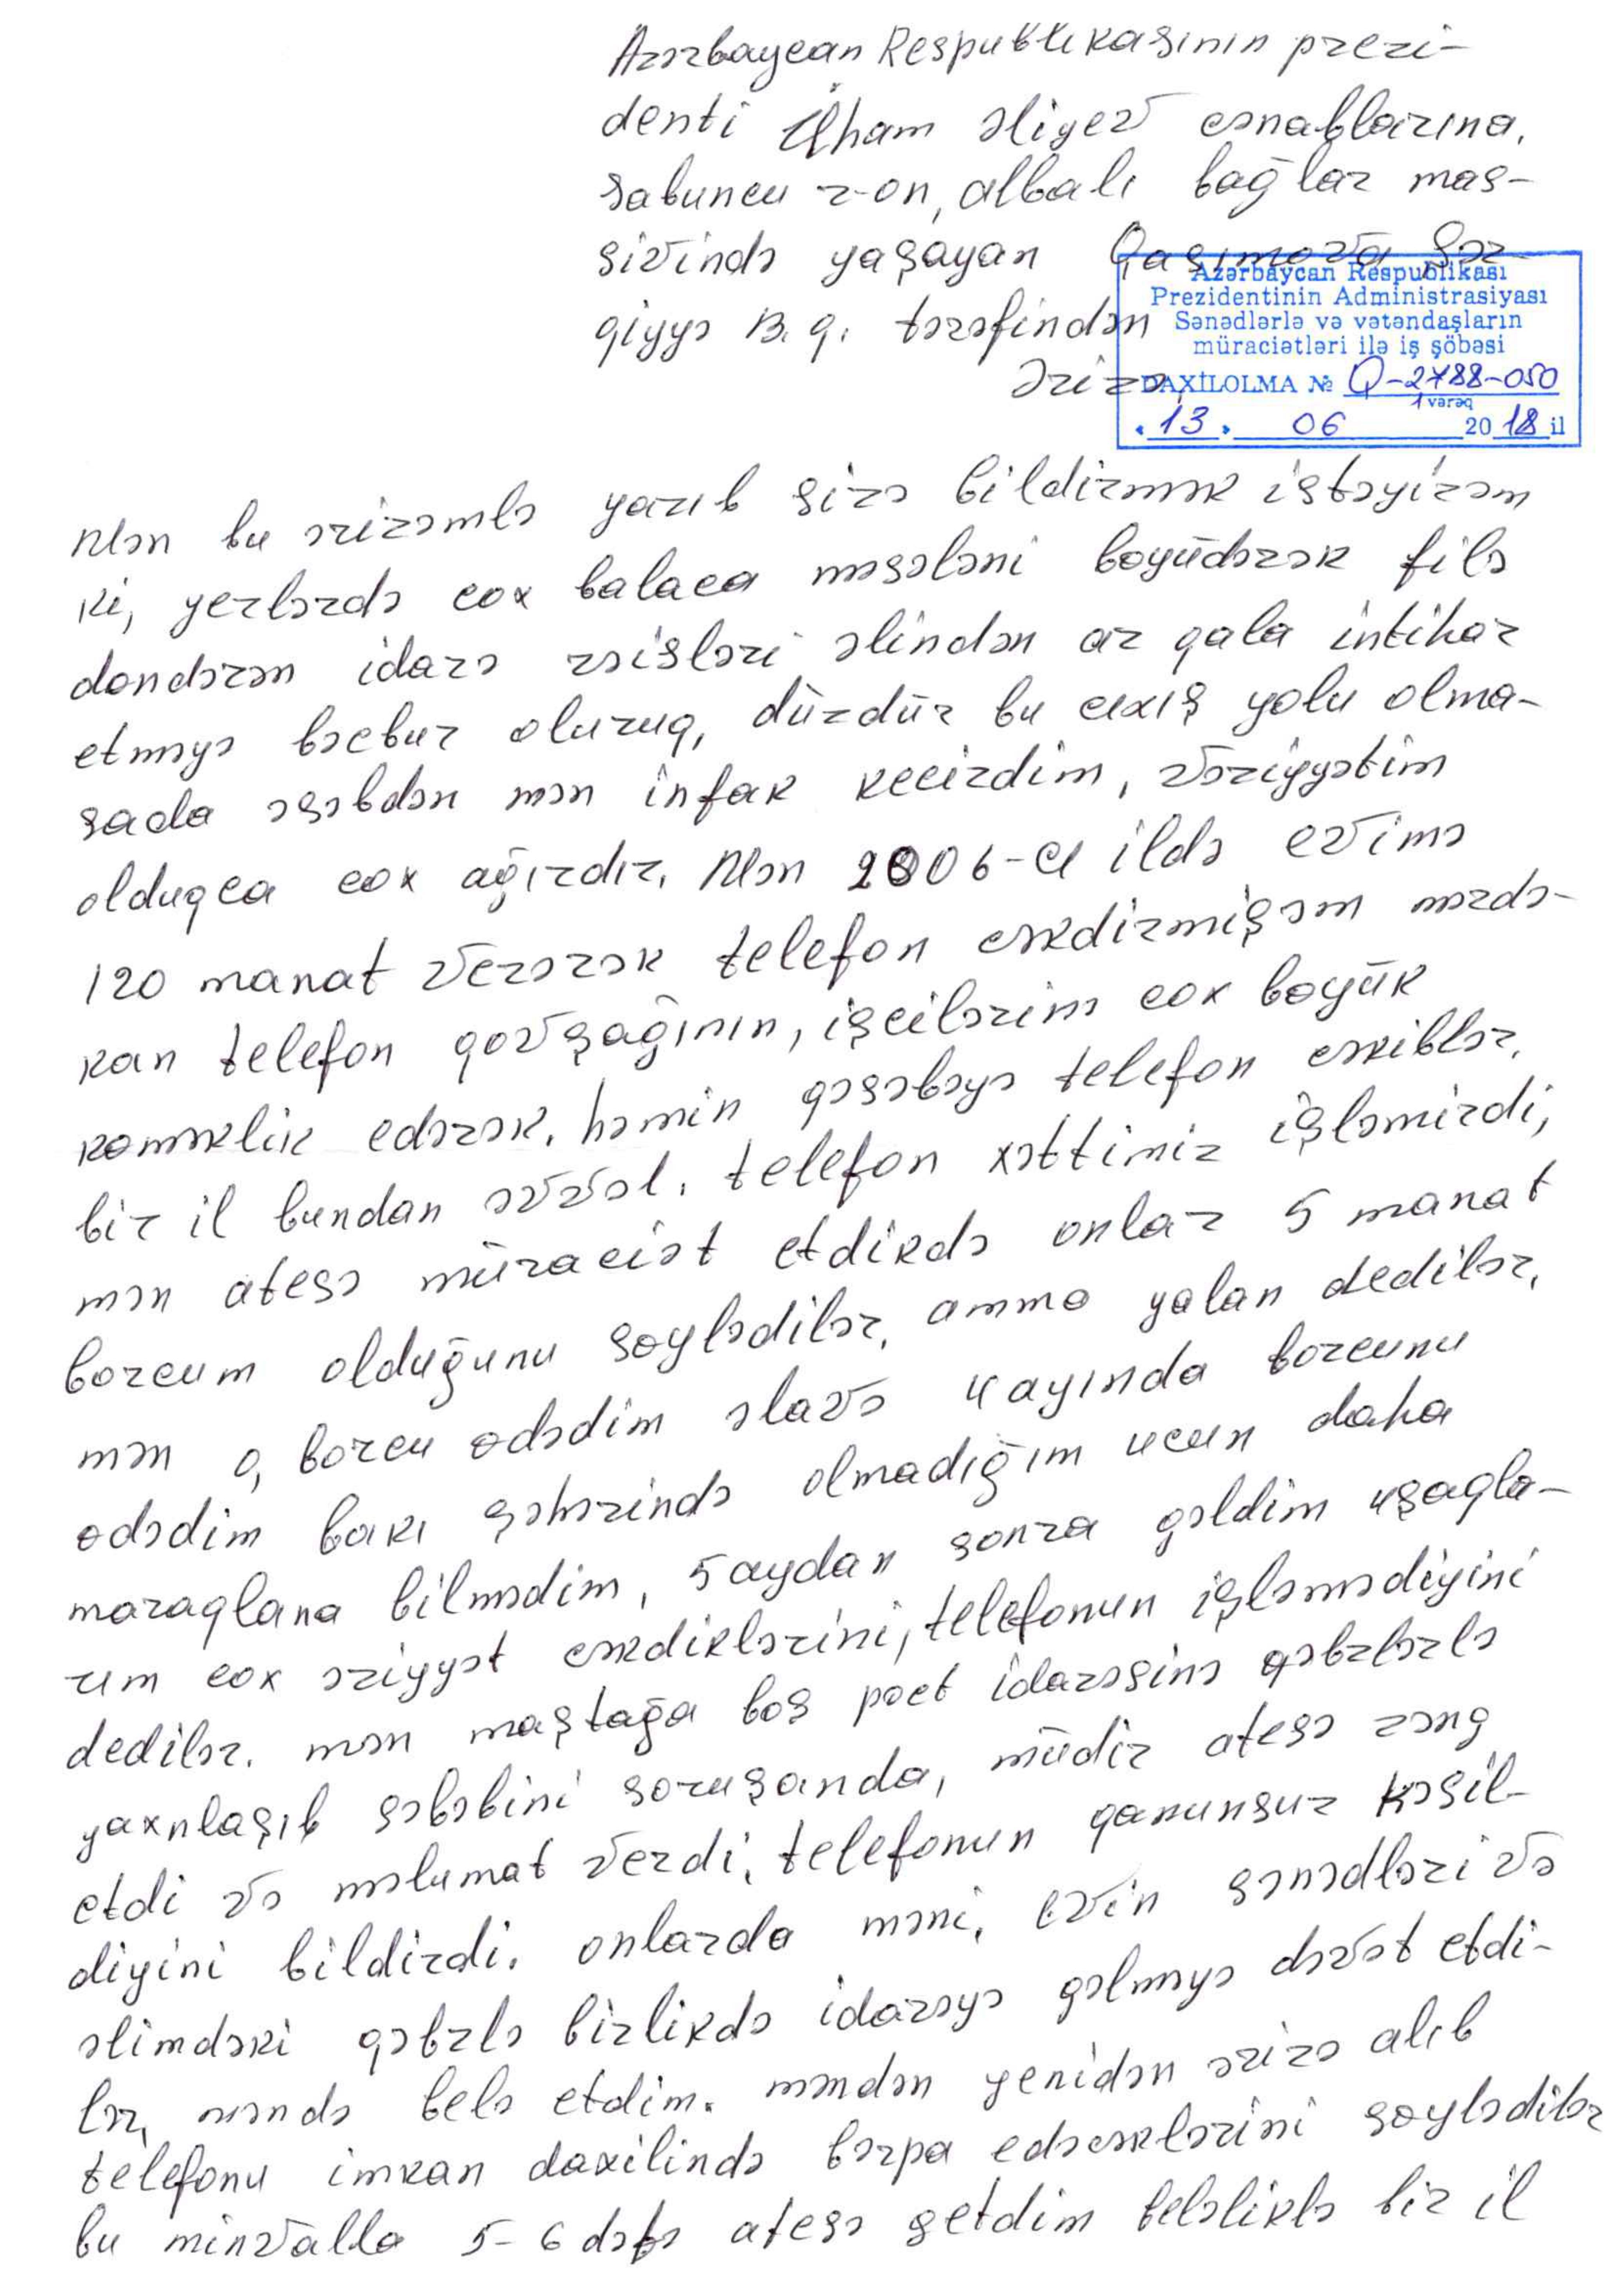 Azərbaycan Respublikasının prezi-
denti İlham əliyev cənablarına,
sabuncu r-on, albalı bağlar mas-
sivində yaşayan Qasımova Şər-
qiyyə B. q. tərəfindən
Ərizə
Azərbaycan Respublikası
Prezidentinin Administrasiyası
Sənədlərlə və vətəndaşların
müraciətləri ilə iş şöbəsi
DAXİLOLMA № Q-2788-050
1 vərəq
"13" 06 2018 il
Mən bu ərizəmlə yazıb sizə bildirmək istəyirəm
ki, yerlərdə cox balaca məsələni boyüdərək filə
dondərən idarə rəisləri əlindən az qala intihar
etməyə bəcbur oluruq, düzdür bu cıxış yolu olma-
sada əsəbdən mən infak kecirdim, vəziyyətim
olduqca cox ağırdır. Mən 2006-cı ildə evimə
120 manat verərək telefon cəkdirmişəm mərdə-
kan telefon qovşağının, işcilərinə cox boyük
koməklik edərək. həmin qəsəbəyə telefon cəkiblər.
bir il bundan əvvəl. telefon xəttimiz işləmirdi,
mən atesə müraciət etdikdə onlar 5 manat
borcum olduğunu soylədilər. amma yalan dedilər.
mən o, borcu odədim əlavə 4 ayında borcunu
odədim bakı şəhərində olmadığım ucun daha
maraqlana bilmədim, 5 aydan sonra gəldim uşaqla-
rım cox əziyyət cəkdiklərini, telefonun işləmədiyini
dedilər. mən maştağa bos poct idarəsinə qəbzlərlə
yaxnlaşıb səbəbini soruşanda, müdir atesə zəng
etdi və məlumat verdi. telefonun qanunsuz kəsil-
diyini bildirdi. onlarda məni, evin sənədləri və
əlimdəki qəbzlə birlikdə idarəyə gəlməyə dəvət etdi-
lər, məndə belə etdim. məndən yenidən ərizə alıb
telefonu imkan daxilində bərpa edəcəklərini soylədilər
bu minvalla 5-6 dəfə atesə getdim beləliklə bir il